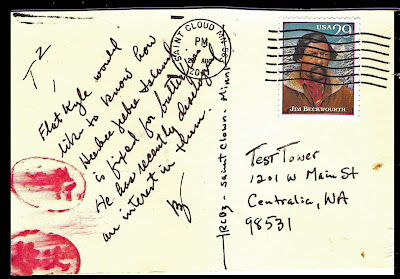 TZ,
Flat Kyle would
like to know how
Heebee Jeebe Island
is fixed for butterflies.
He has recently developed
an interest in them.
SAINT CLOUD MN
PM
AUG
USA 29
JIM BECKWOURTH
TEST TOWER
1201 W Main St
Centralia, WA
98531